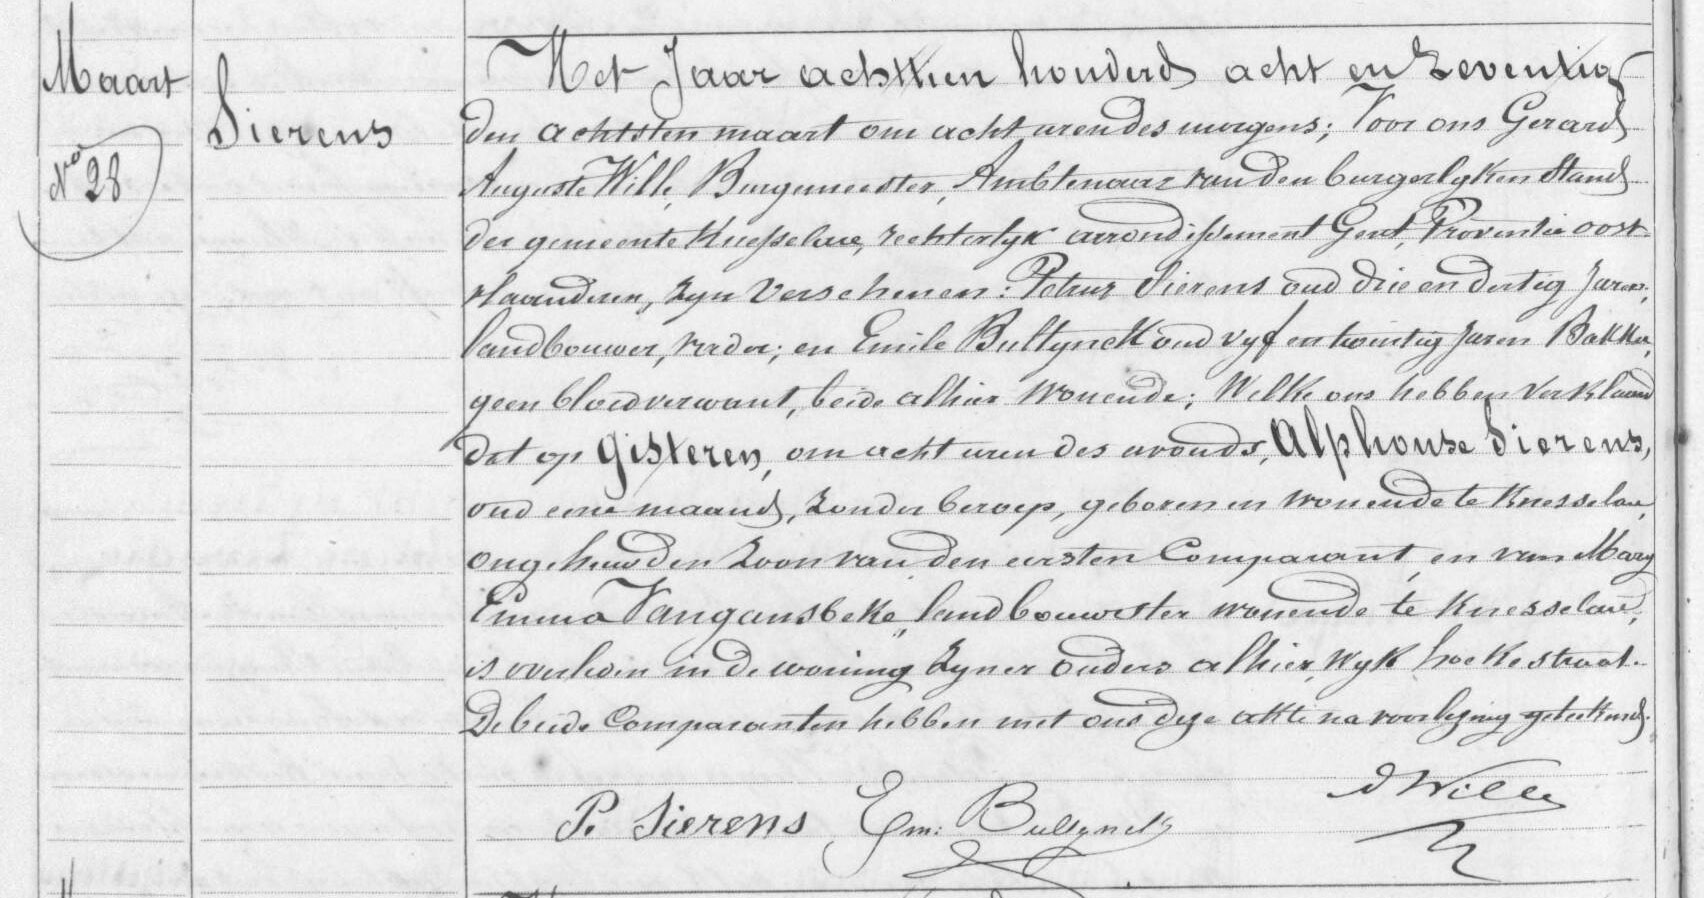 Maart
No 28
Sierens
Het Jaar achttien honderd acht en zeventig
den achtsten maart om acht uren des morgens; Voor ons Gerard
Auguste Wille, Burgemeester, Ambtenaar van den burgerlyken Stand
der gemeente Knesselare, rechterlyk arrondissement Gent, Provintie oost
vlaanderen, zyn verschenen: Petrus Sierens oud drie en dertig Jaren,
landbouwer, vader; en Emile Bultynck oud vyf en twintig Jaren Bakker,
geen bloedverwant, beide alhier wonende; Welke ons hebben verklaard
dat op gisteren, om acht uren des avonds, Alphonse Sierens,
oud eene maand, zonder beroep, geboren en wonende te Knesselare,
ongehuwden zoon van den eersten Comparant, en van Mary
Emma Vangansbeke, landbouwster wonende te Knesselare,
is overleden in de woning zyner ouders alhier, wyk hoekestraat.
De beide Comparanten hebben met ons deze akte na voorlezing geteekend.
P. Sierens Em: Bultynck
Wille